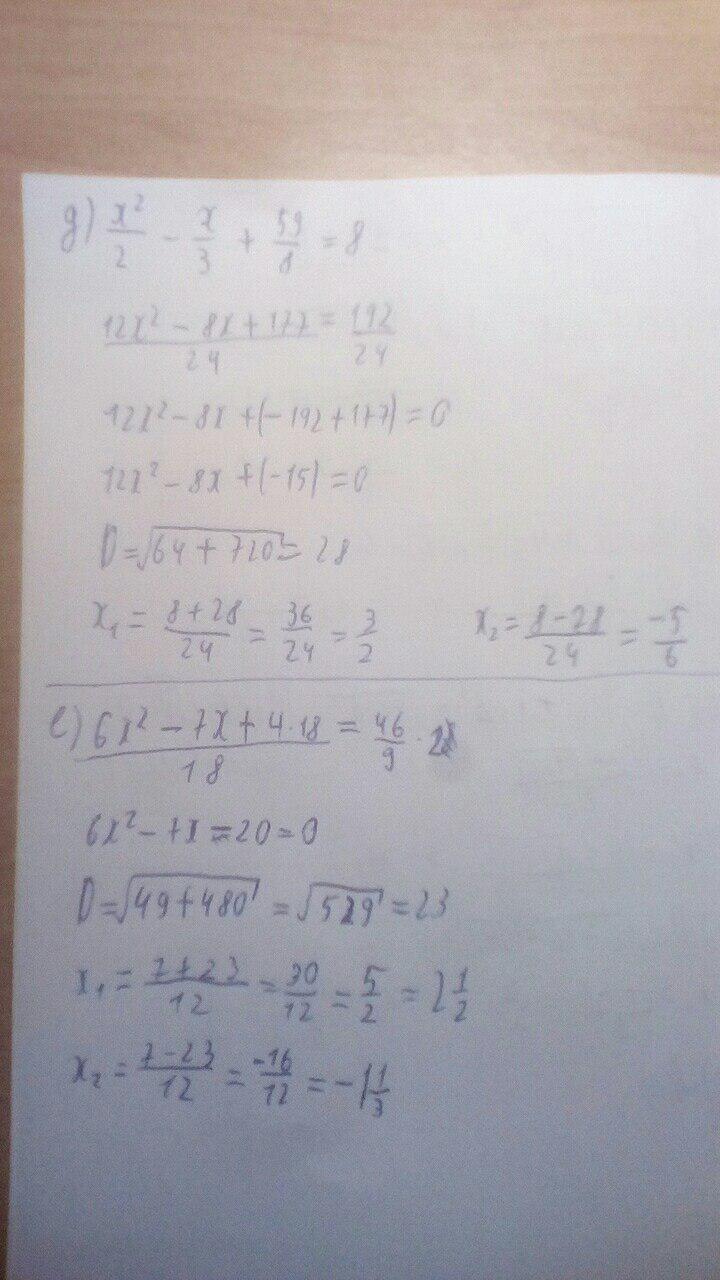 д) x²/2 - x/3 + 59/8 = 8
(12x² - 8x + 177)/24 = 192/24
12x² - 8x + (-192 + 177) = 0
12x² - 8x + (-15) = 0
D = √(64 + 720) = 28
x₁ = (8 + 28)/24 = 36/24 = 3/2 x₂ = (8 - 28)/24 = -5/6
е) (6x² - 7x + 4·18)/18 = 46/9 ·
6x² - 7x = 20 = 0
D = √(49 + 480) = √529 = 23
x₁ = (7 + 23)/12 = 30/12 = 5/2 = 2 1/2
x₂ = (7 - 23)/12 = -16/12 = -1 1/3